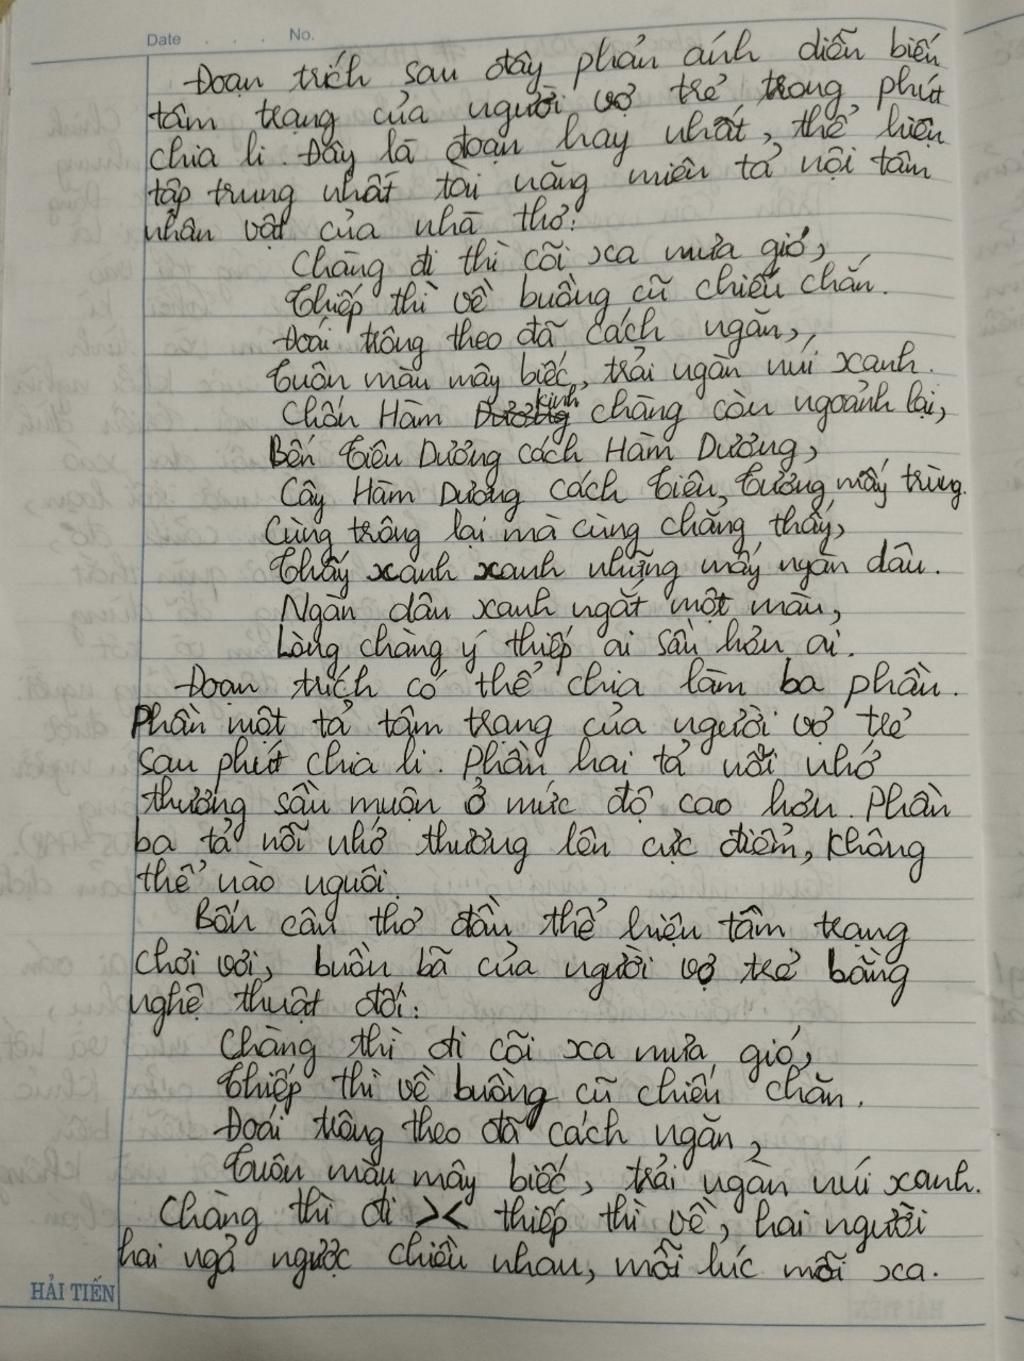 Date . . . No.
Đoạn trích sau đây phản ánh diễn biến
tâm trạng của người vợ trẻ trong phút
chia li. Đây là đoạn hay nhất, thể hiện
tập trung nhất tài năng miêu tả nội tâm
nhân vật của nhà thơ:
Chàng đi thì cõi xa mưa gió,
Thiếp thì về buồng cũ chiếu chăn.
Đoái trông theo đã cách ngăn,
Tuôn màu mây biếc, trải ngàn núi xanh.
Chốn Hàm kinh chàng còn ngoảnh lại,
Bến Tiêu Dương cách Hàm Dương,
Cây Hàm Dương cách Tiêu, Tương mấy trùng.
Cùng trông lại mà cùng chẳng thấy,
Thấy xanh xanh những mấy ngàn dâu.
Ngàn dâu xanh ngắt một màu,
Lòng chàng ý thiếp ai sầu hơn ai.
Đoạn trích có thể chia làm ba phần.
Phần một tả tâm trạng của người vợ trẻ
sau phút chia li. Phần hai tả nỗi nhớ
thương sầu muộn ở mức độ cao hơn. Phần
ba tả nỗi nhớ thương lên cực điểm, không
thể nào nguôi.
Bốn câu thơ đầu thể hiện tâm trạng
chơi vơi, buồn bã của người vợ trẻ bằng
nghệ thuật đối:
Chàng thì đi cõi xa mưa gió,
Thiếp thì về buồng cũ chiếu chăn.
Đoái trông theo đã cách ngăn,
Tuôn màu mây biếc, trải ngàn núi xanh.
Chàng thì đi >< thiếp thì về, hai người
hai ngả ngược chiều nhau, mỗi lúc mỗi xa.
HẢI TIẾN